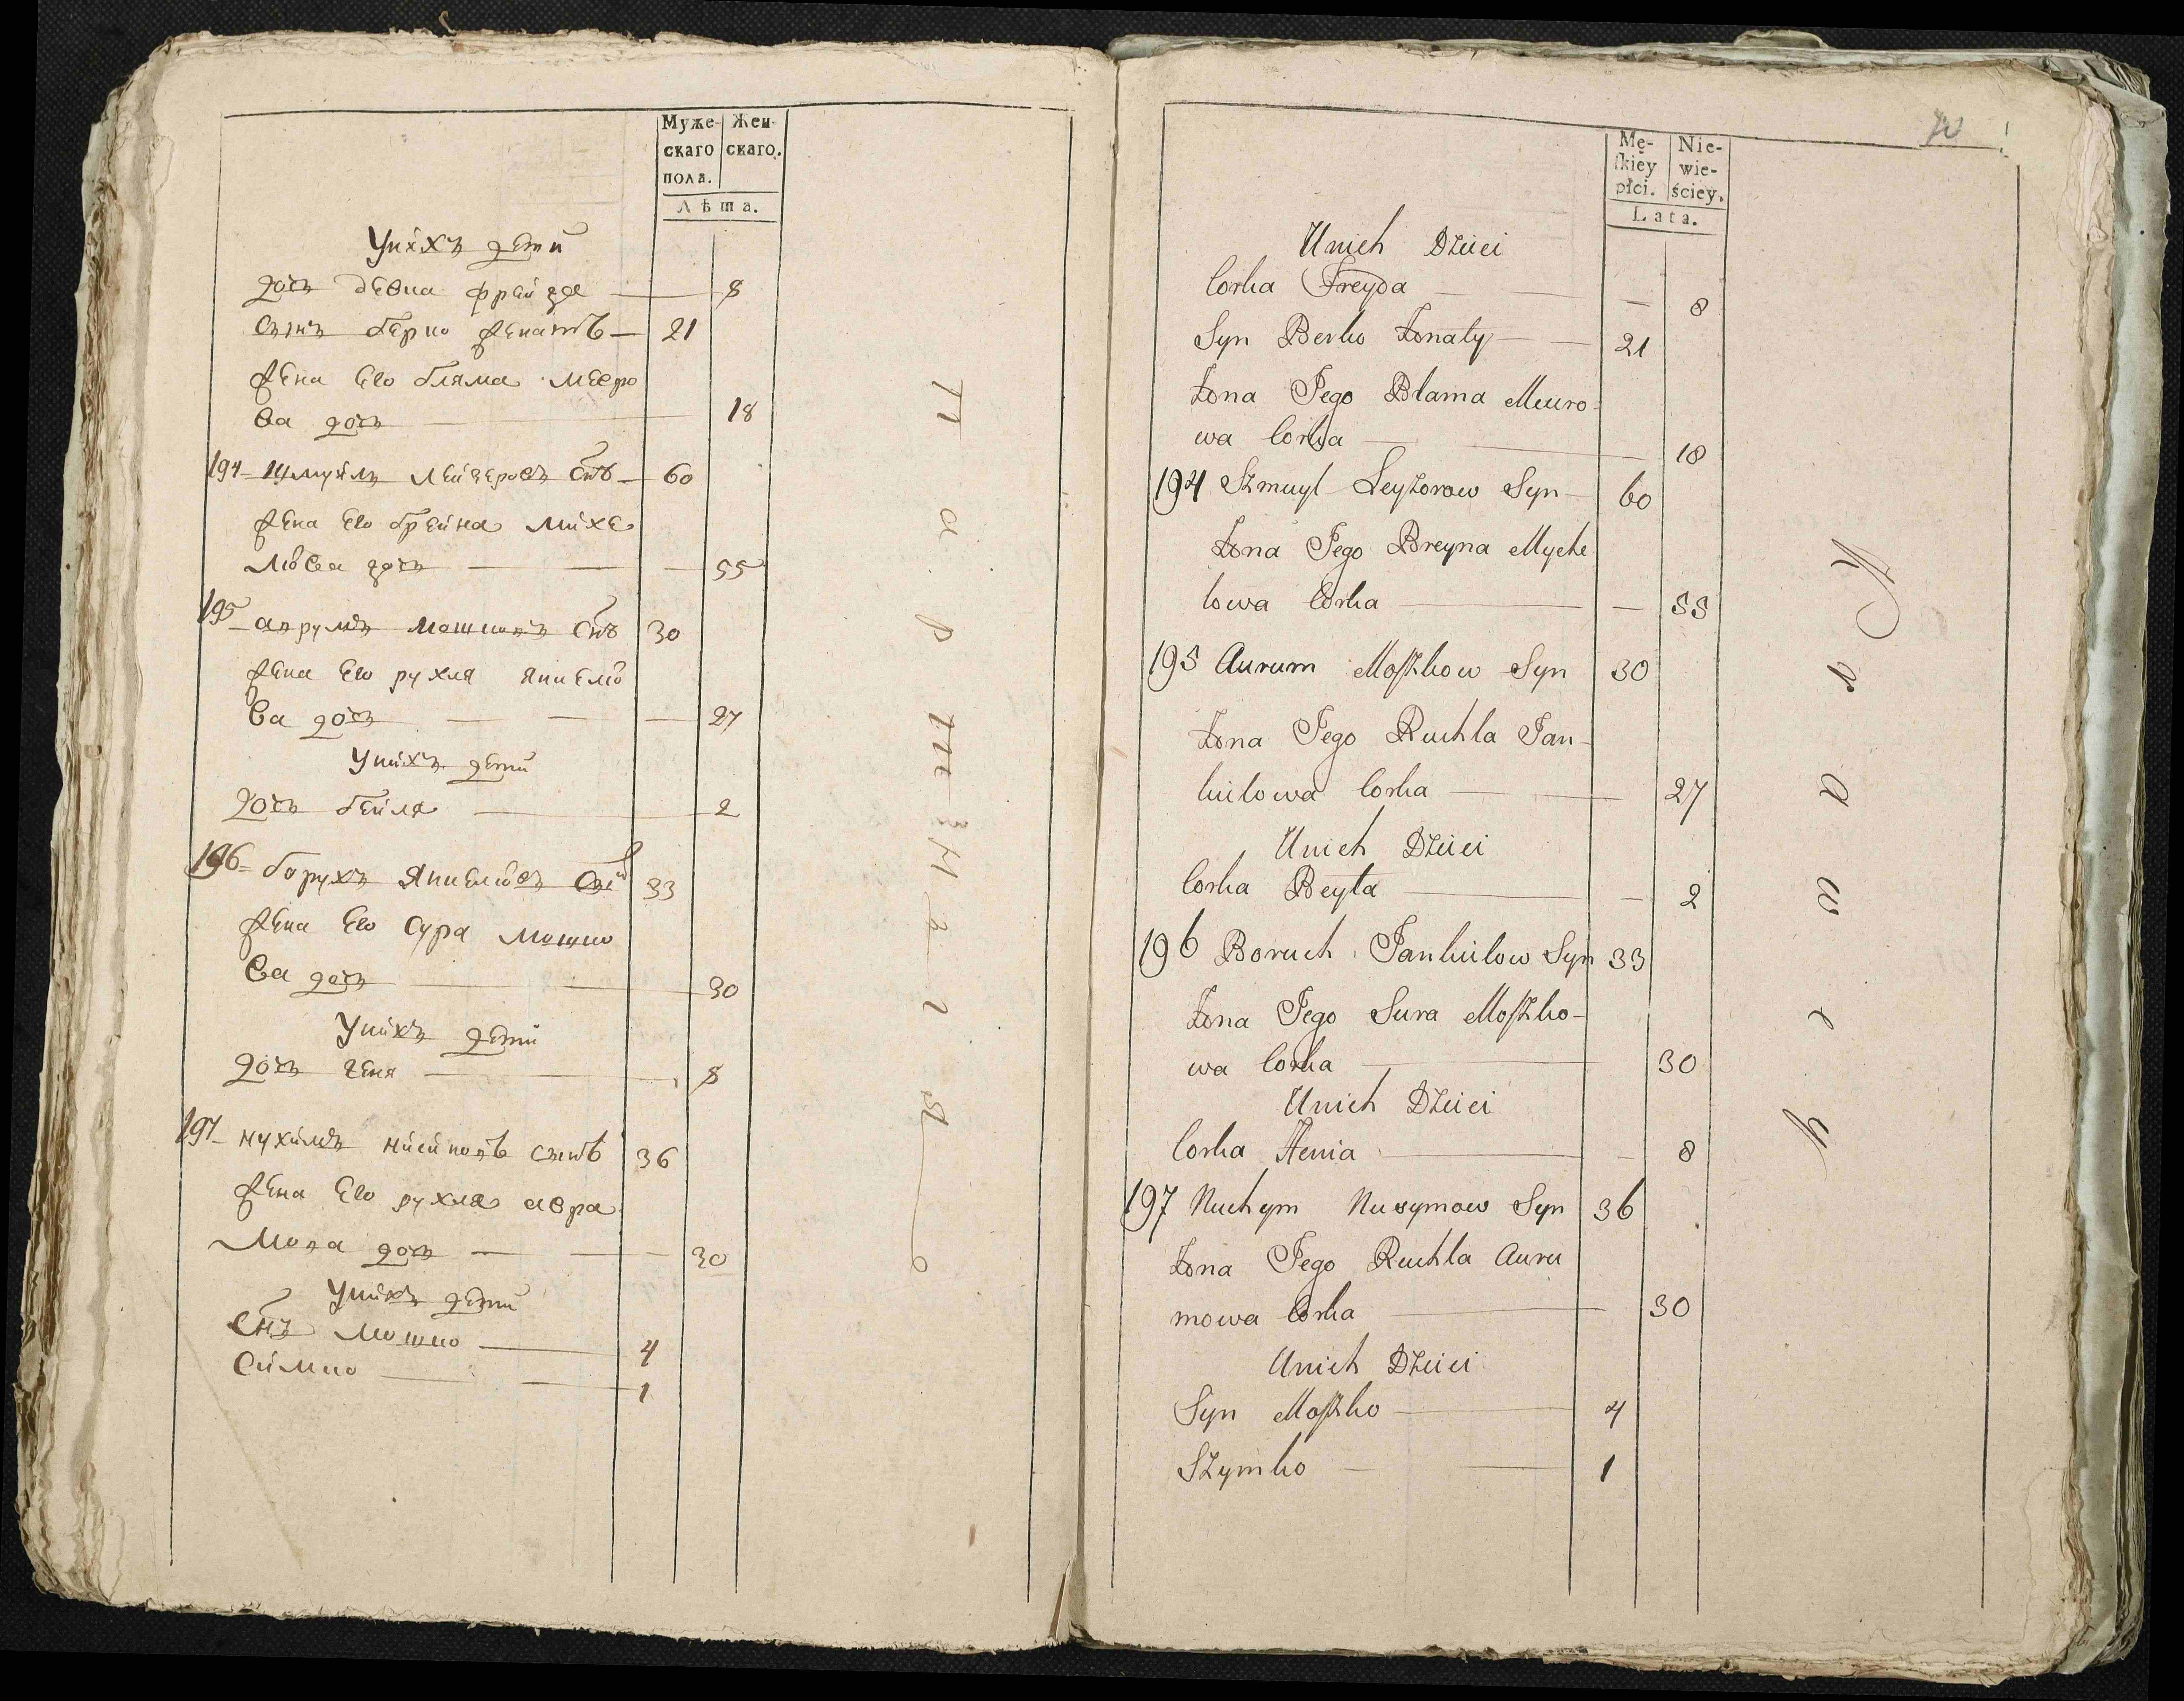 Муже- Жен-
скаго скаго.
пола.
Лѣта.
Унихъ дети
дочь девка фрейда 8
сынъ берко женатъ 21
жена его бляма мееро
ва дочь 18
194 шмуйлъ лейзеровъ снъ 60
жена его брейна михе
лова дочь 55
195 аврумъ мошковъ снъ 30
жена его рухля янкело
ва дочь 27
Унихъ дети
дочь бейля 2
196 борухъ янкеловъ снъ 33
жена его сура мошко
ва дочь 30
Унихъ дети
дочь геня 8
197 нухимъ сынъ 36
жена его рухля авра
мова дочь 30
Унихъ дети
снъ мошко 4
симко 1
Mę- Nie-
ſkiey wie-
płci. ściey.
Lata.
Unich Dzieci
Corka Freyda 8
Syn Berko Żonaty 21
Żona Jego Blama Meiero-
wa Corka 18
194 Szmuyl Leyzorow Syn 60
Żona Jego Breyna Myche
lowa Corka 55
195 Aurum Moſzkow Syn 30
Żona Jego Ruchla Jan-
kielowa Corka 27
Unich Dzieci
Corka Beyla 2
196 Boruch Jankielow Syn 33
Żona Jego Sura Moſzko-
wa Corka 30
Unich Dzieci
Corka Henia 8
197 Nuchym Nusymow Syn 36
Żona Jego Ruchla Auru
mowa Corka 30
Unich Dzieci
Syn Moſzko 4
Szymko 1